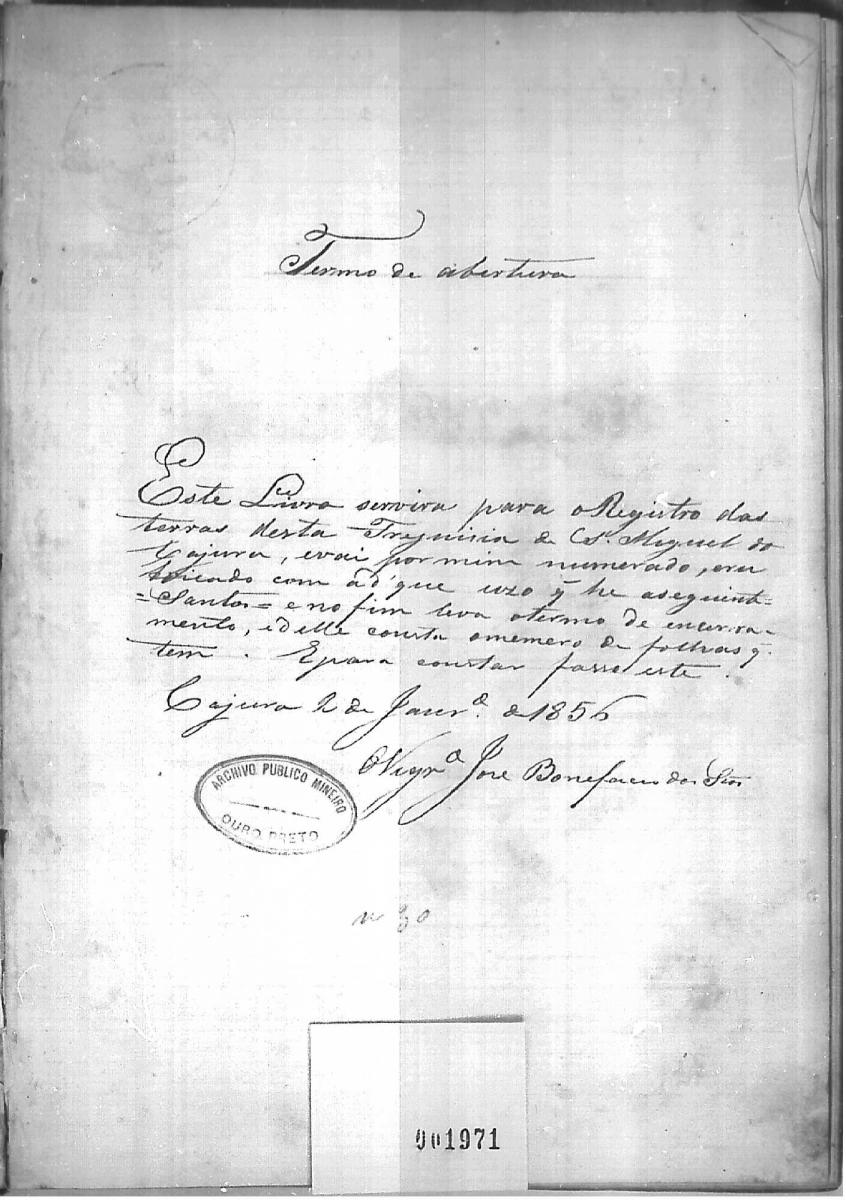 Termo de abertura
Este Livro servira para o Registro das
terras desta Freguisia de S. Miguel do
Cajuru, e vai por mim numerado, e ru
bricado com a d' que uzo q he a seguinte
=Santos= e no fim leva o termo de encerra-
mento, e delle consta o numero de folhas q.
tem. E para constar fasso este.
Cajuru 2 de Janrº. de 1856
O Vigrº José Bonefacio dos Stos
ARCHIVO PUBLICO MINEIRO
OURO PRETO
nº 30
001971